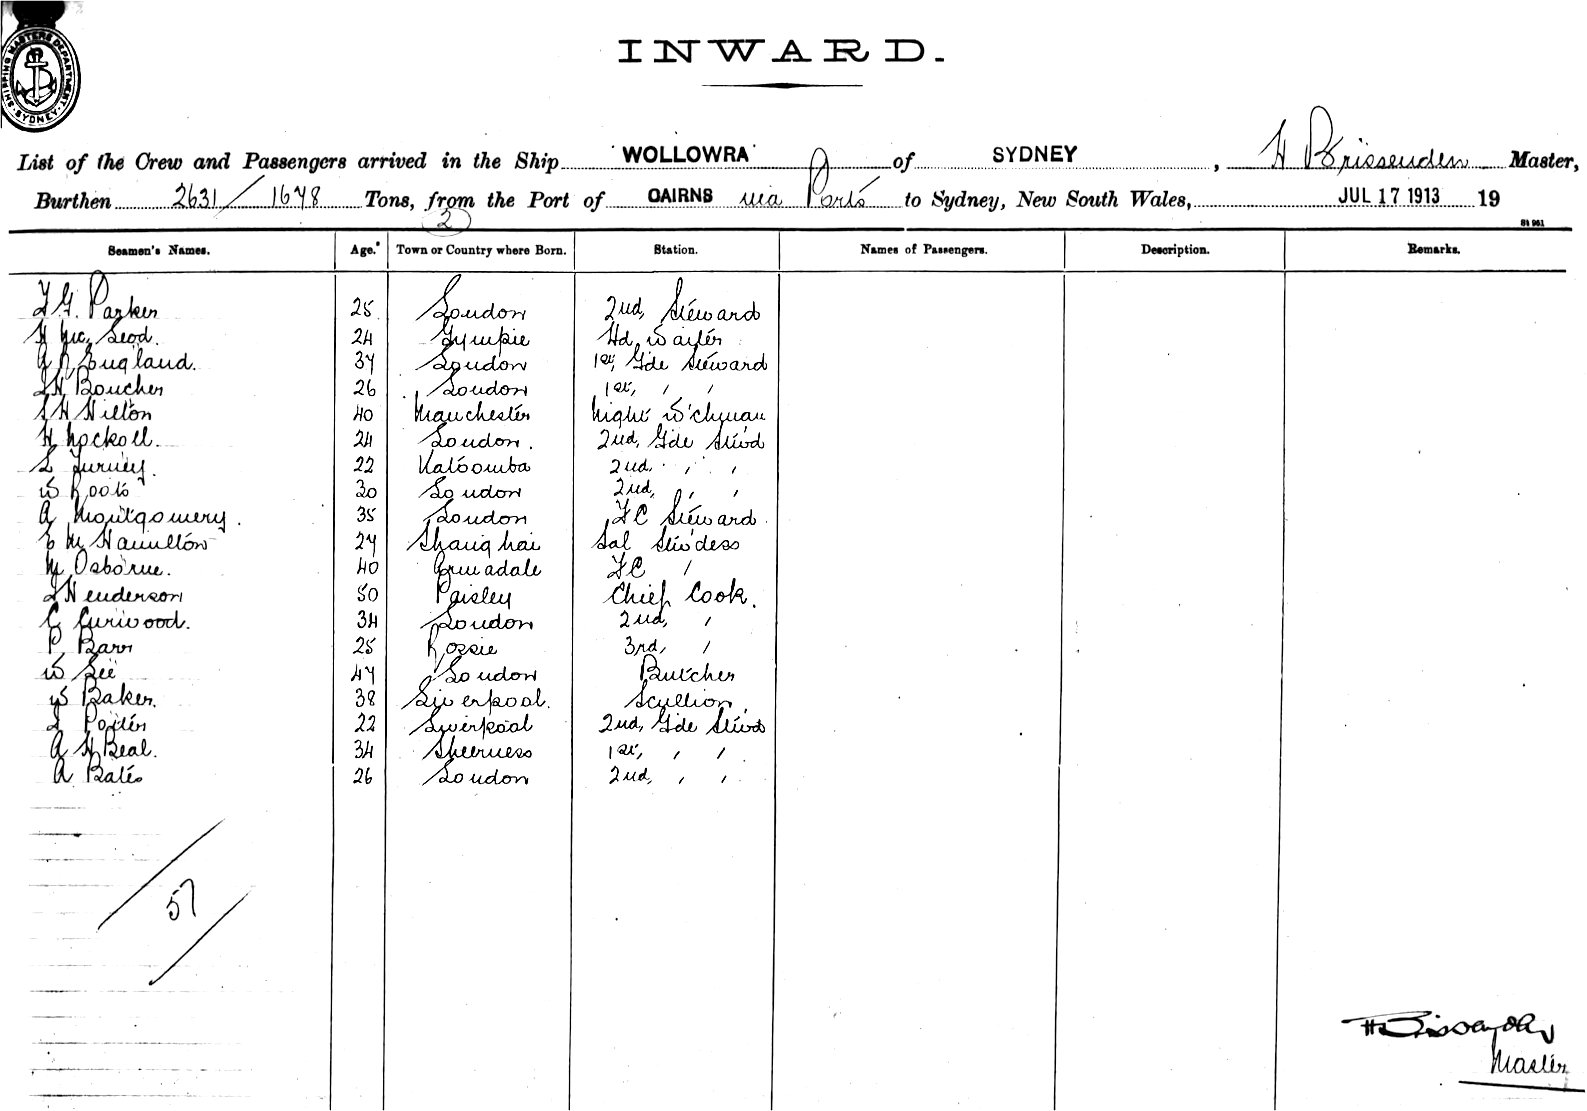 SHIPPING MASTERS DEPARTMENT SYDNEY
INWARD.
List of the Crew and Passengers arrived in the Ship WOLLOWRA of SYDNEY, H Brissenden Master,
Burthen 2631/1678 Tons, from the Port of CAIRNS via Ports to Sydney, New South Wales, JUL 17 1913 19
(2)
Seamen's Names. Age. Town or Country where Born. Station. Names of Passengers. Description. Remarks.
Parker 25 London 2nd, Steward
H McLeod. 24 Gympie Hd waiter
England. 37 London 1st, Gde Steward
Boucher 26 London 1st, " "
Hilton 40 Manchester Night W'chman
H Nockoll. 24 London. 2nd, Gde Stwd
Turney. 22 Katoomba 2nd, " "
W Roots 30 London 2nd, " "
A Montgomery. 35 London Steward
E M Hamilton 27 Shanghai Sal Stw'dess
M Osborne. 40 Armadale "
Henderson 50 Paisley Chief Cook.
C Curwood. 34 London 2nd, "
P Barr 25 Rossie 3rd, "
W Lee 47 London Butcher
W Baker. 38 Liverpool. Scullion
Porter 22 Liverpool 2nd, Gde Stwd
A H Beal. 34 Sheerness 1st, " "
A Bates 26 London 2nd, " "
57
Master